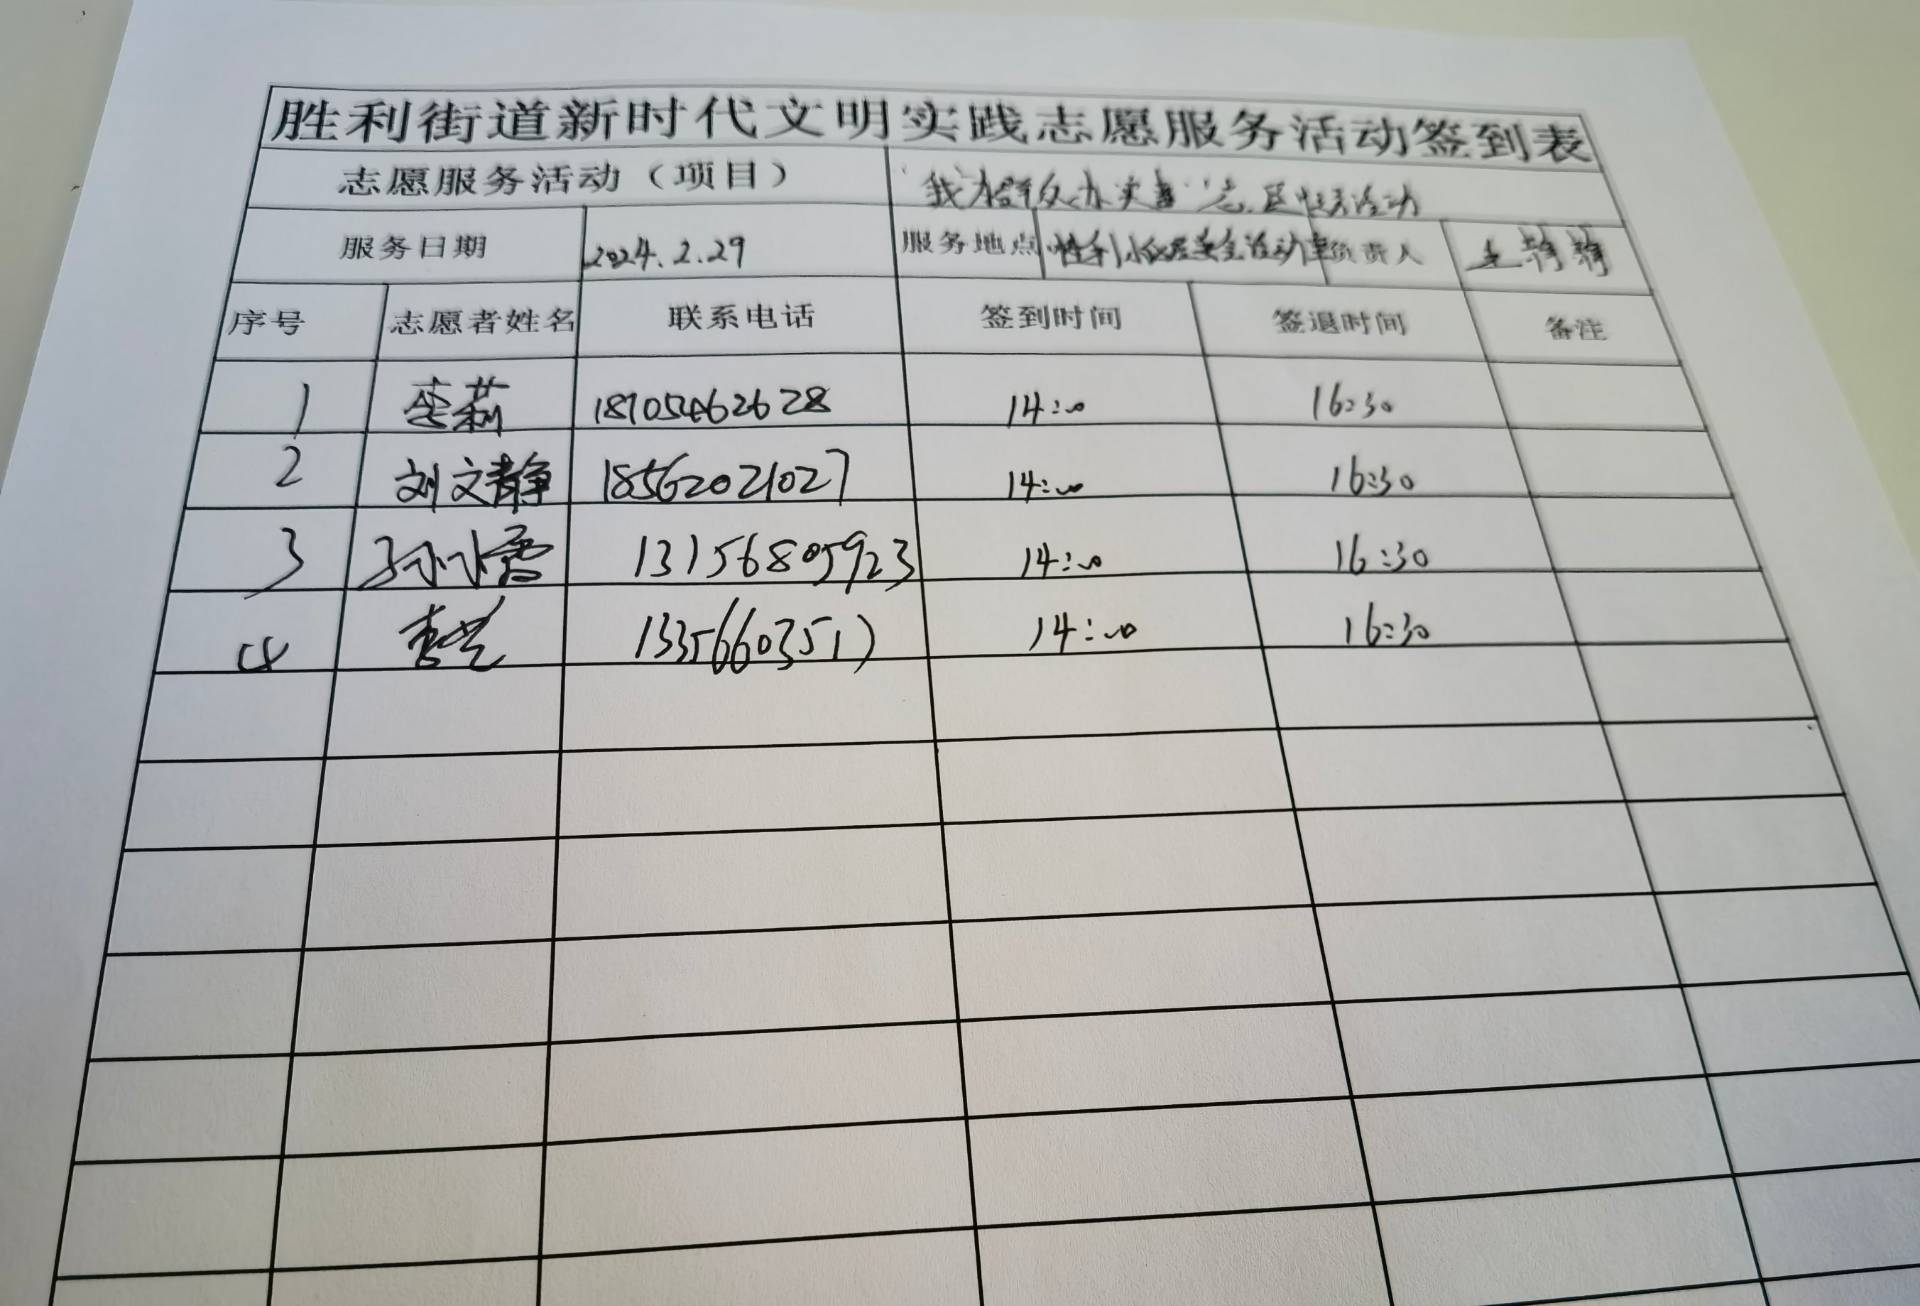 胜利街道新时代文明实践志愿服务活动签到表
志愿服务活动（项目） “我为群众办实事”志愿服务活动
服务日期 2024.2.29 服务地点 负责人 王静静
序号 志愿者姓名 联系电话 签到时间 签退时间 备注
1 李莉 18705462628 14:00 16:30
2 刘文静 18562021027 14:00 16:30
3 13156805923 14:00 16:30
4 13356603517 14:00 16:30